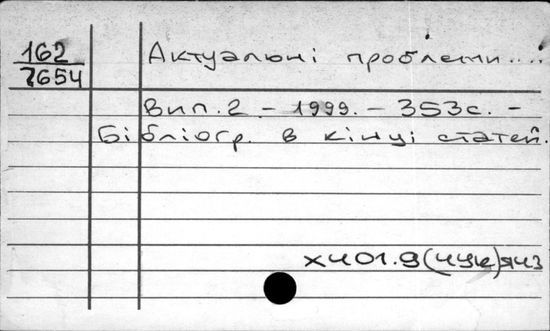 162 Актуальні проблеми...:
7654
Вип. 2. - 1999. - 353с. -
Бібліогр. в кінці статей.
Х401.9(4Ук)я43